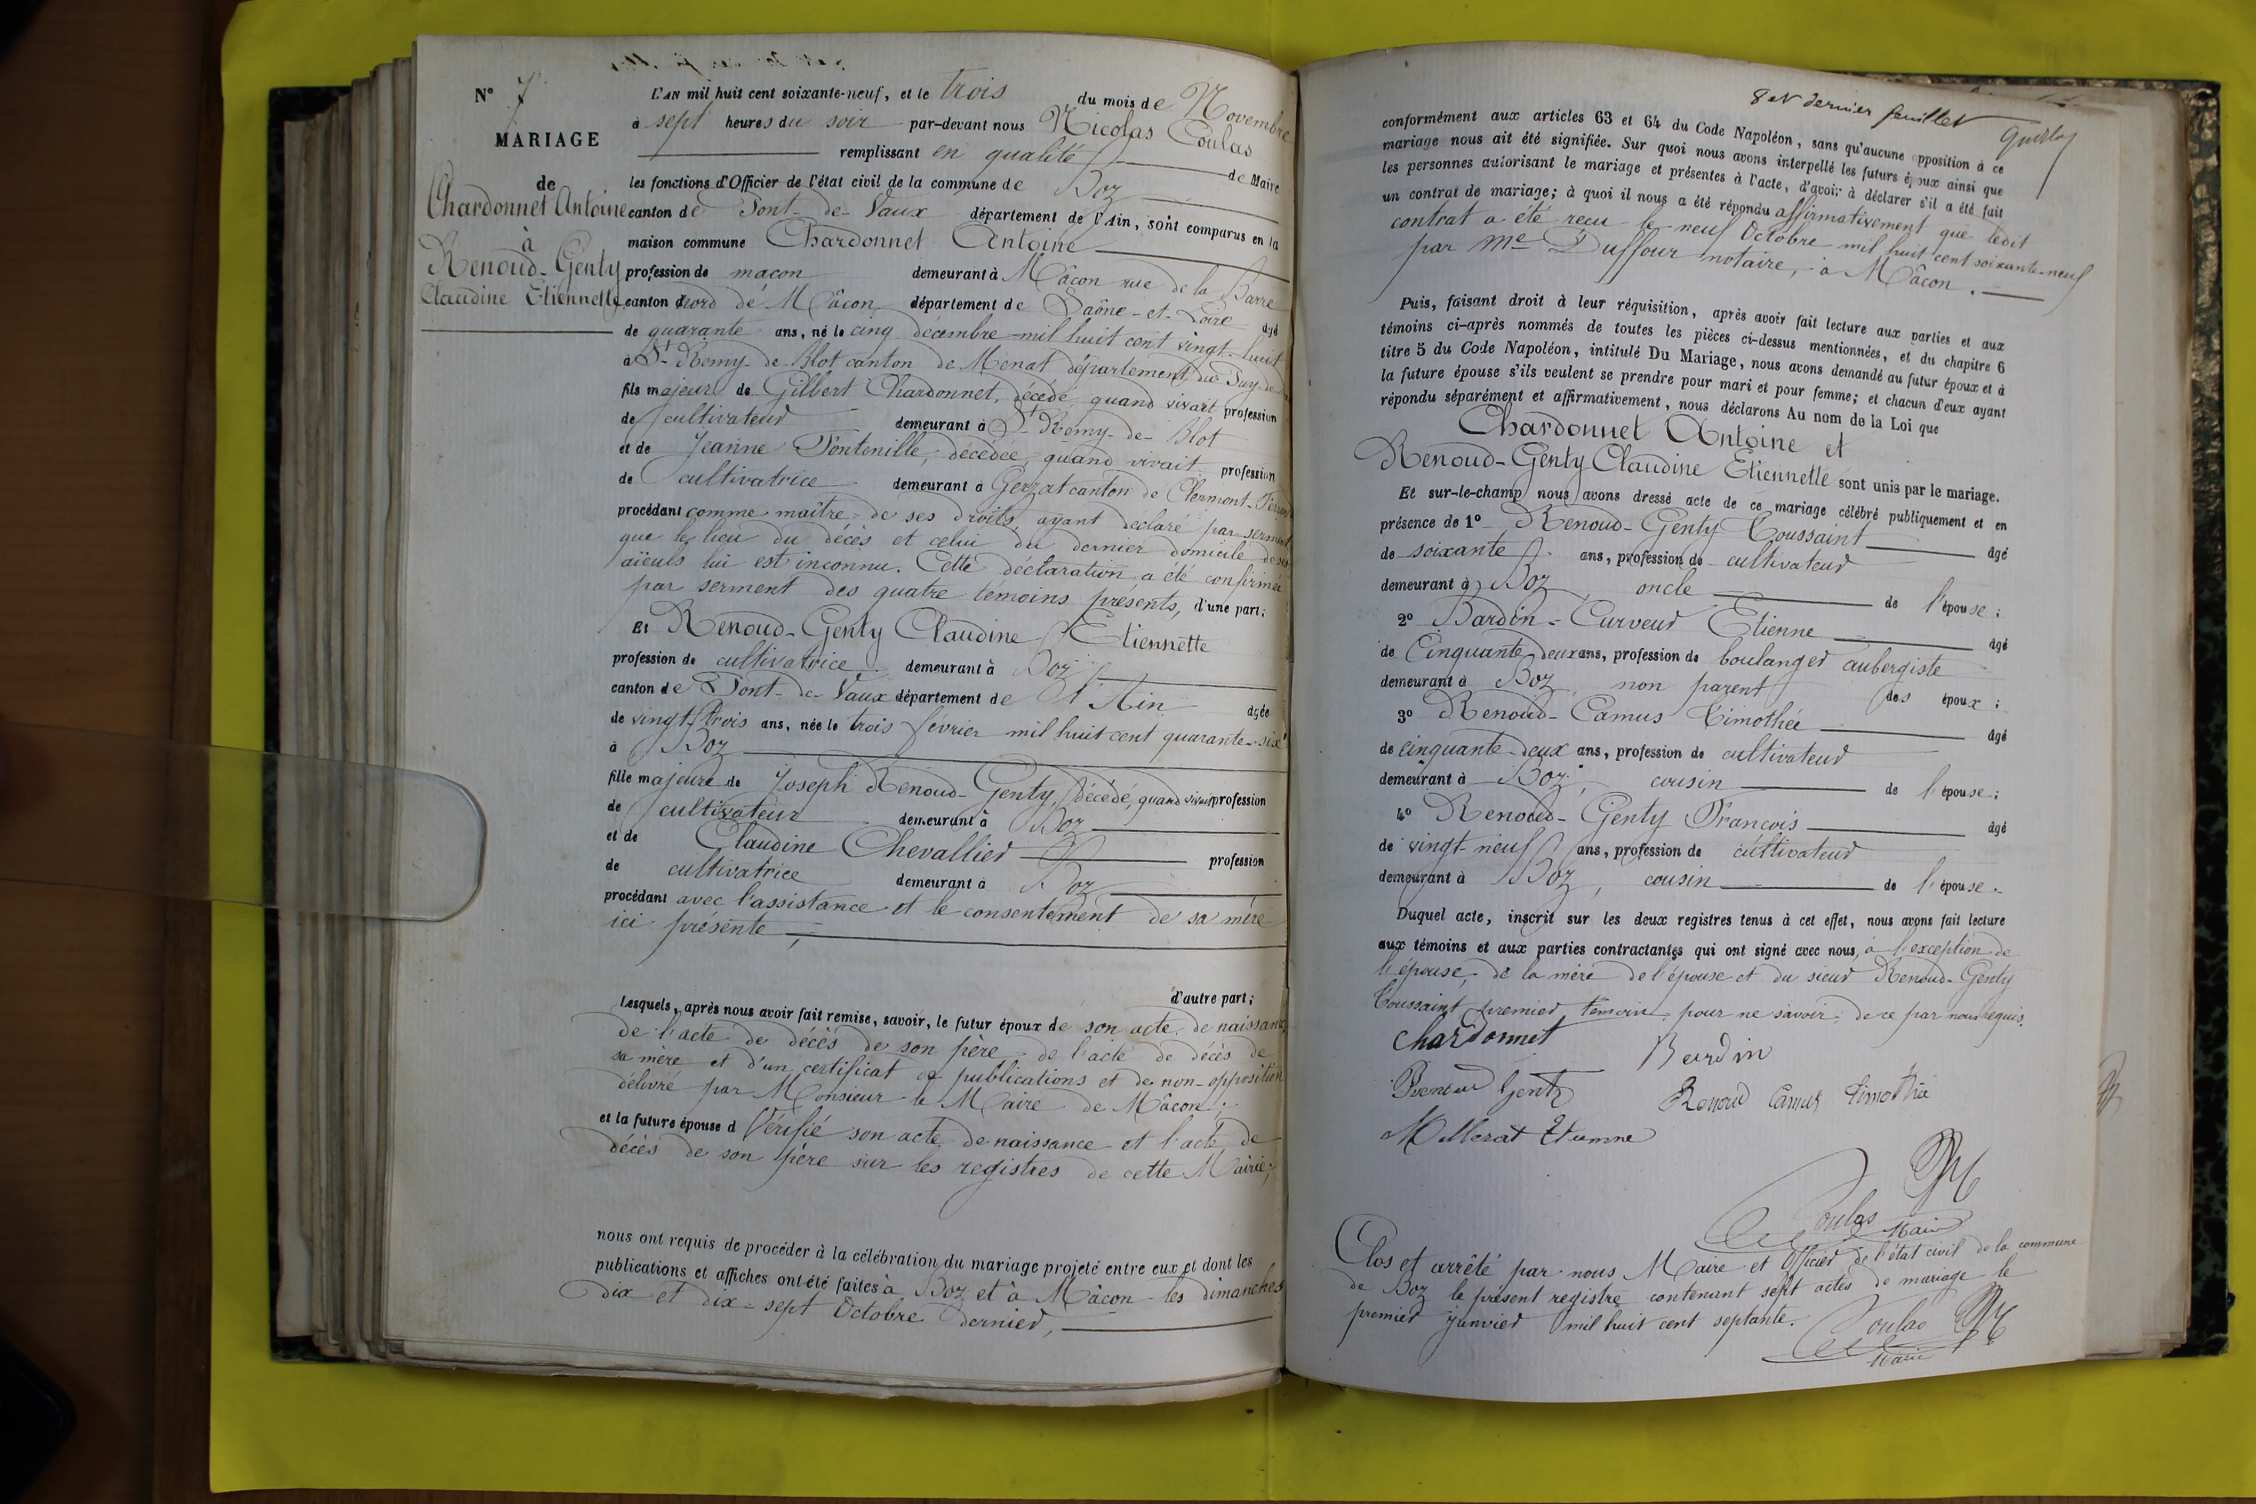 N° 7
MARIAGE
de
Chardonnet Antoine
à
Renoud-Genty
Claudine Etiennette
L'AN mil huit cent soixante-neuf, et le trois du mois de Novembre
à sept heures du soir par-devant nous Nicolas Coulas
remplissant en qualité de Maire
les fonctions d'Officier de l'état civil de la commune de Boz
canton de Pont-de-Vaux département de l'Ain, sont comparus en la
maison commune Chardonnet Antoine
profession de maçon demeurant à Mâcon rue de la Barre
canton nord de Mâcon département de Saône-et-Loire âgé
de quarante ans, né le cinq décembre mil huit cent vingt-huit
à St Remy-de-Blot canton de Menat département du Puy-de
fils majeur de Gilbert Chardonnet, décédé, quand vivait profession
de cultivateur demeurant à St Remy-de-Blot
et de Jeanne Fontenille, décédée, quand vivait profession
de cultivatrice demeurant à Gerzat canton de Clermont-Ferrand
procédant comme maître de ses droits, ayant déclaré par serment
que le lieu du décès et celui du dernier domicile de ses
aïeuls lui est inconnu. Cette déclaration a été confirmée
par serment des quatre témoins présents, d'une part;
Et Renoud-Genty Claudine Etiennette
profession de cultivatrice demeurant à Boz
canton de Pont-de-Vaux département de l'Ain âgée
de vingt-trois ans, née le trois février mil huit cent quarante-six
à Boz
fille majeure de Joseph Renoud-Genty, décédé, quand vivait profession
de cultivateur demeurant à Boz
et de Claudine Chevallier profession
de cultivatrice demeurant à Boz
procédant avec l'assistance et le consentement de sa mère
ici présente,
d'autre part;
Lesquels, après nous avoir fait remise, savoir, le futur époux de son acte de naissance
de l'acte de décès de son père, de l'acte de décès de
sa mère et d'un certificat de publications et de non-opposition
délivré par Monsieur le Maire de Mâcon;
et la future épouse d Vérifié son acte de naissance et l'acte de
décès de son père sur les registres de cette Mairie;
nous ont requis de procéder à la célébration du mariage projeté entre eux et dont les
publications et affiches ont été faites à Boz et à Mâcon les dimanches
dix et dix-sept Octobre dernier,
8 et dernier feuillet
conformément aux articles 63 et 64 du Code Napoléon, sans qu'aucune opposition à ce
mariage nous ait été signifiée. Sur quoi nous avons interpellé les futurs époux ainsi que
les personnes autorisant le mariage et présentes à l'acte, d'avoir à déclarer s'il a été fait
un contrat de mariage; à quoi il nous a été répondu affirmativement que ledit
contrat a été reçu le neuf Octobre mil huit cent soixante-neuf
par Me Duffour notaire, à Mâcon.
Puis, faisant droit à leur réquisition, après avoir fait lecture aux parties et aux
témoins ci-après nommés de toutes les pièces ci-dessus mentionnées, et du chapitre 6
titre 5 du Code Napoléon, intitulé Du Mariage, nous avons demandé au futur époux et à
la future épouse s'ils veulent se prendre pour mari et pour femme; et chacun d'eux ayant
répondu séparément et affirmativement, nous déclarons Au nom de la Loi que
Chardonnet Antoine et
Renoud-Genty Claudine Etiennette sont unis par le mariage.
Et sur-le-champ nous avons dressé acte de ce mariage célébré publiquement et en
présence de 1° Renoud-Genty Toussaint âgé
de soixante ans, profession de cultivateur
demeurant à Boz, oncle de l'épouse;
2° Bardin-Curveur Etienne âgé
de Cinquante deux ans, profession de boulanger aubergiste
demeurant à Boz non parent des époux;
3° Renoud-Camus Timothée âgé
de cinquante-deux ans, profession de cultivateur
demeurant à Boz, cousin de l'épouse;
4° Renoud-Genty François âgé
de vingt-neuf ans, profession de cultivateur
demeurant à Boz, cousin de l'épouse.
Duquel acte, inscrit sur les deux registres tenus à cet effet, nous avons fait lecture
aux témoins et aux parties contractantes qui ont signé avec nous, à l'exception de
l'épouse, de la mère de l'épouse et du sieur Renoud-Genty
Toussaint, premier témoin, pour ne savoir; de ce par nous requis.
Chardonnet
Bardin
Genty
Renoud Camus Timothée
Coulas
Maire
Clos et arrêté par nous Maire et Officier de l'état civil de la commune
de Boz le présent registre contenant sept actes de mariage le
premier janvier mil huit cent septante.
Coulas
Maire